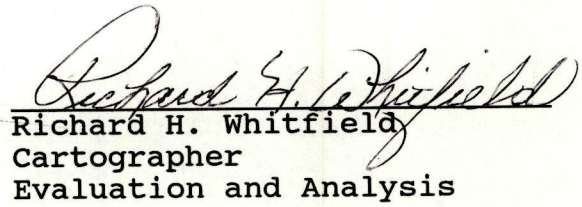 Richard H. Whitfield
Richard H. Whitfield
Cartographer
Evaluation and Analysis